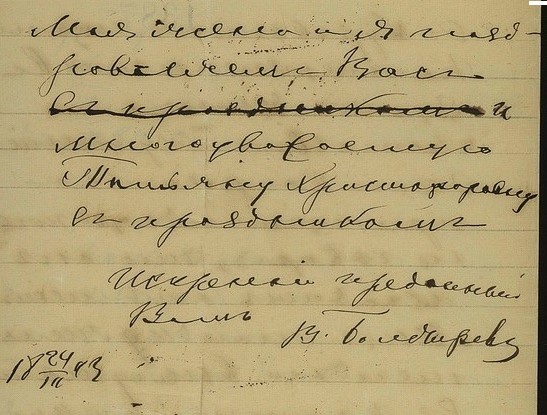 Моя жена и я позд-
ровляемъ Васъ
съ праздникомъ и
многоуважаемую
Татьяну Христофоровну
съ праздникомъ
Искренно преданный
Вамъ
В. Болдыревъ
18 24/III 93